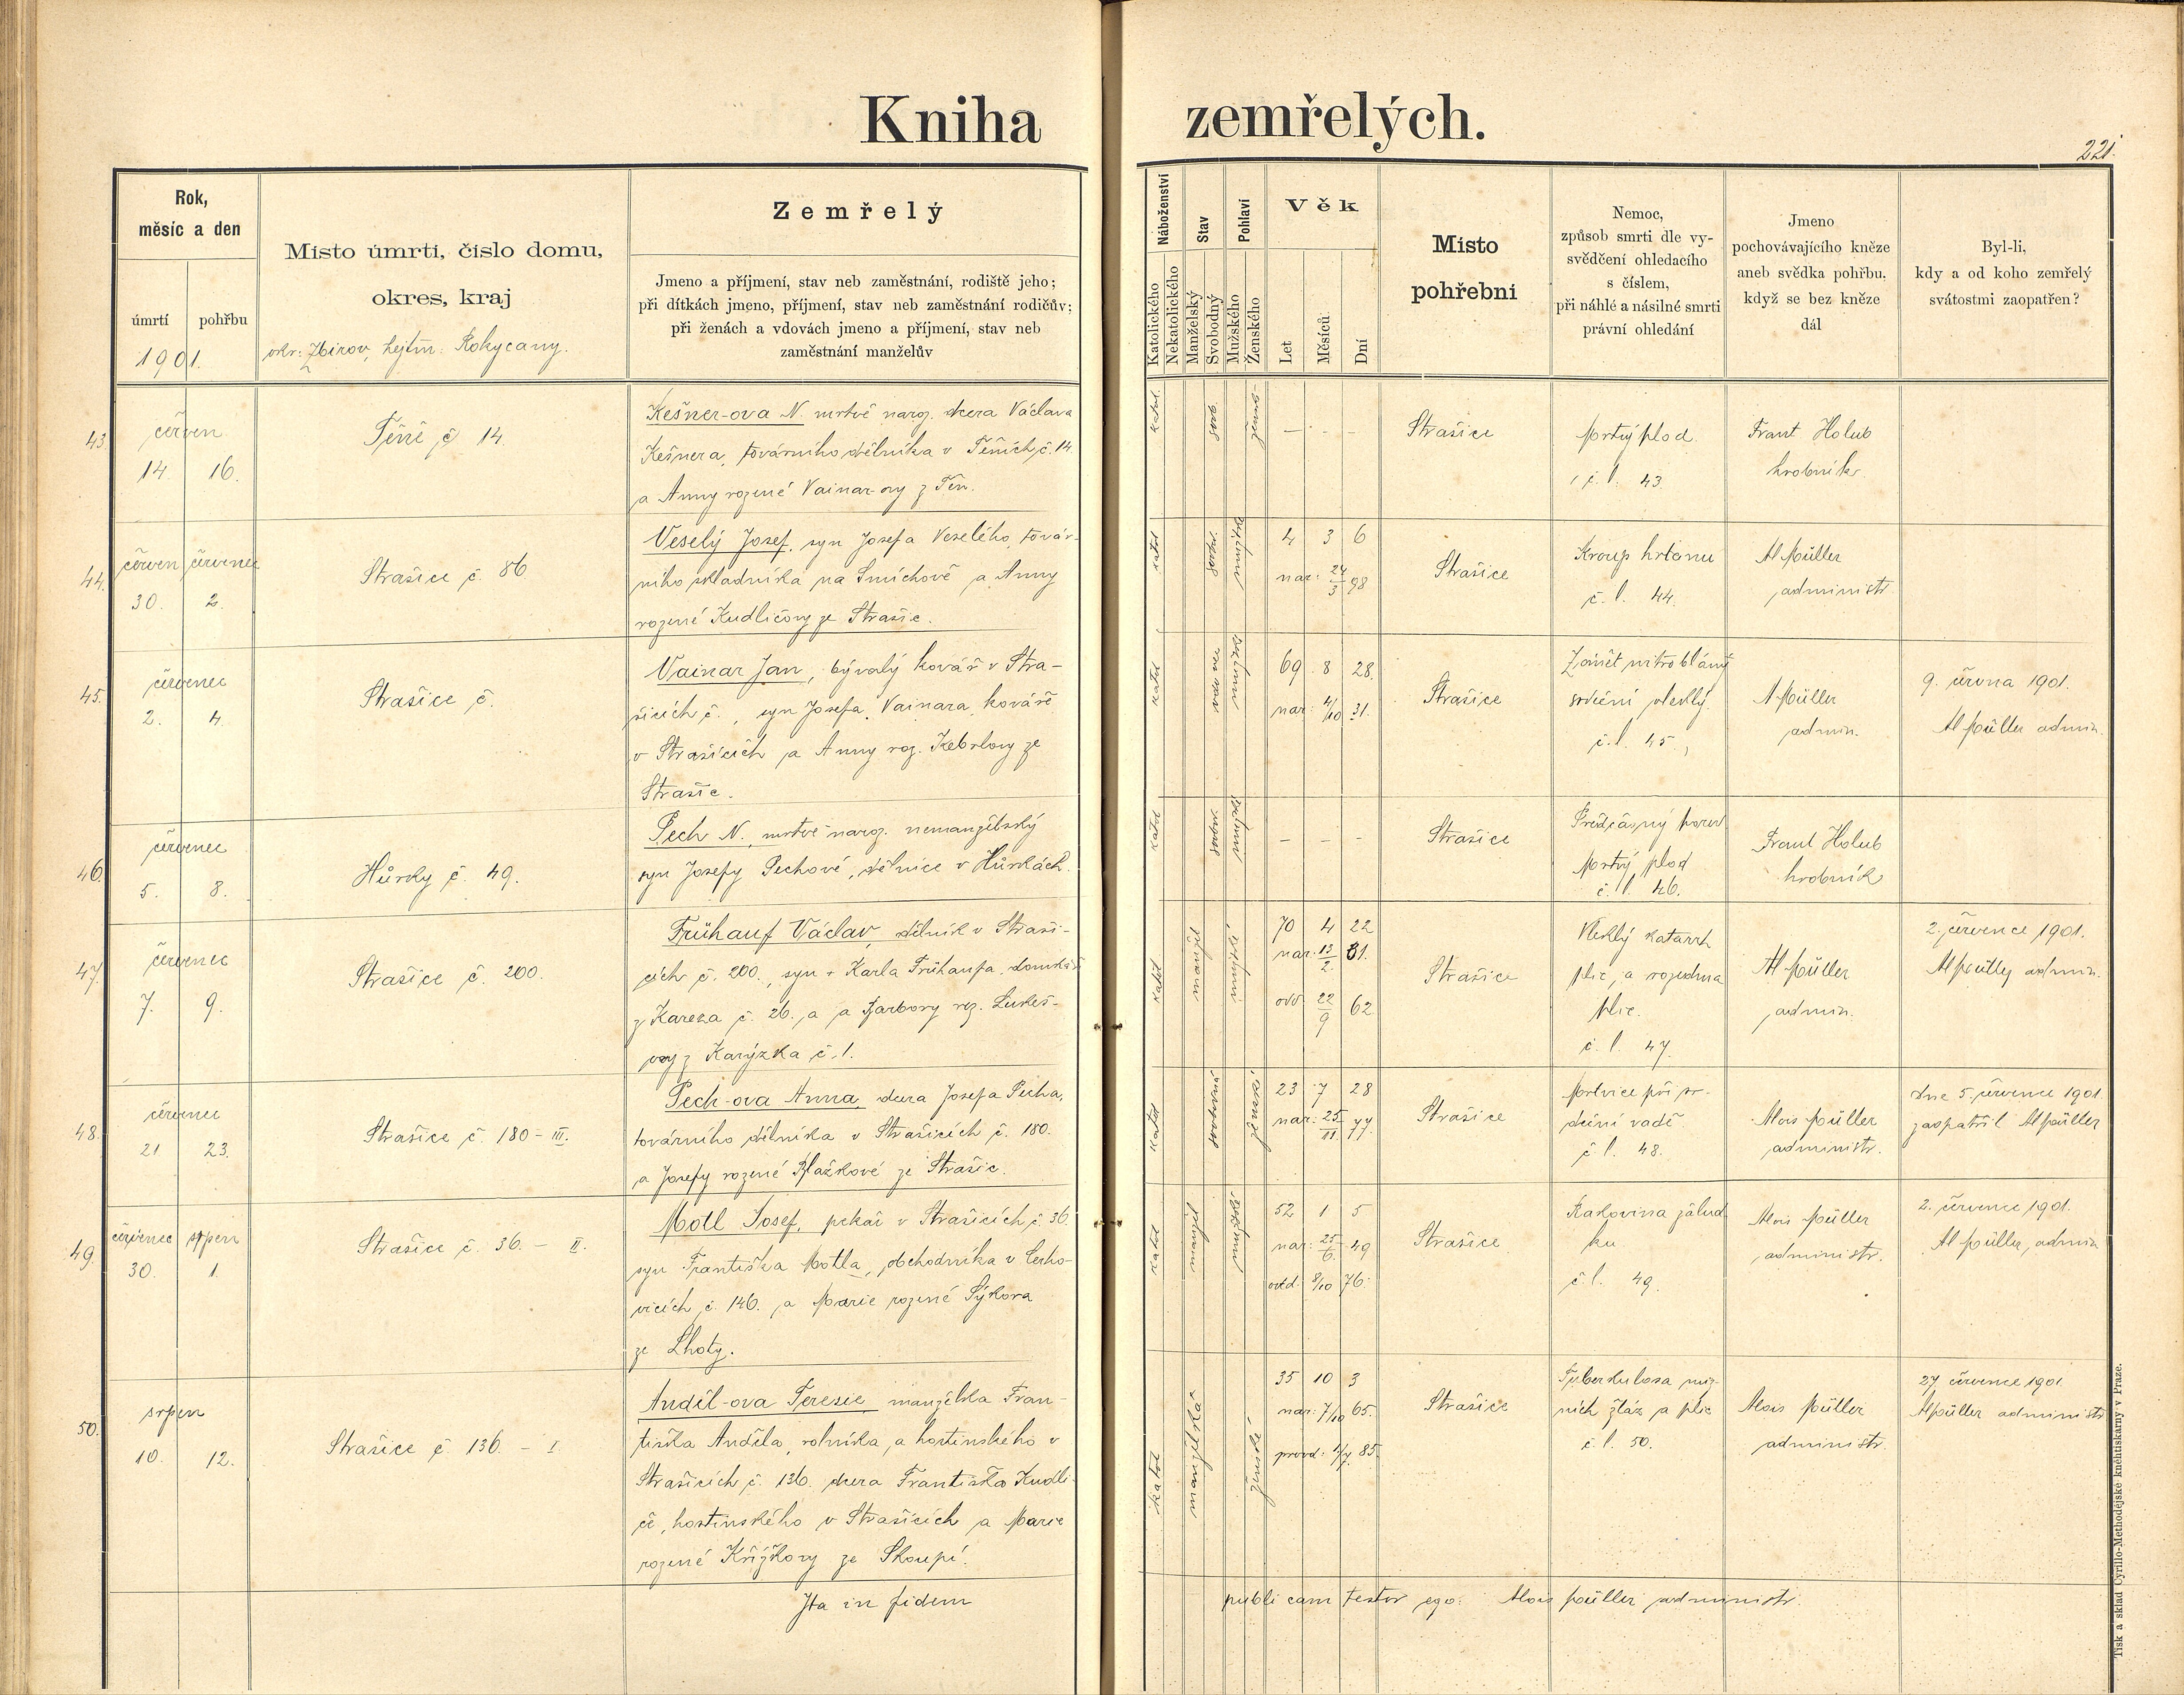 Kniha zemřelých.
221.
Rok,
měsíc a den
úmrtí
pohřbu
1901.
Místo úmrti, čislo domu,
okres, kraj
okr: Zbirov, hejtm: Rokycany.
Zemřelý
Jmeno a příjmení, stav neb zaměstnání, rodiště jeho;
při dítkách jmeno, příjmení, stav neb zaměstnání rodičův;
při ženách a vdovách jmeno a příjmení, stav neb
zaměstnání manželův
Náboženství
Katolického
Nekatolického
Stav
Manželský
Svobodný
Pohlaví
Mužského
Ženského
Věk
Let
Měsíců
Dní
Místo
pohřebni
Nemoc,
způsob smrti dle vy-
svědčení ohledacího
s číslem,
při náhlé a násilné smrti
právní ohledání
Jmeno
pochovávajícího kněze
aneb svědka pohřbu,
když se bez kněze
dál
Byl-li,
kdy a od koho zemřelý
svátostmi zaopatřen?
43
červen
14. 16.
Těně č 14
Kešner-ova N. mrtvě naroz. dcera Václava
Kešnera, továrního dělníka v Těních č. 14
a Anny rozené Vainar-ovy z Těn.
katol.
svob.
žensk-
— - –
Strašice
Mrtvý plod
č. l. 43
Frant Holub
hrobník
44.
červen červenec
30. 2.
Strašice č. 86
Veselý Josef, syn Josefa Veselého, továr-
ního skladníka na Smíchově a Anny
rozené Kudličovy ze Strašic.
katol
svob.
mužské
4 3 6
nar: 24/3 98
Strašice
Kroup hrtanu
č. l. 44.
Al Müller
administr
45.
červenec
2. 4.
Strašice č.
Vainar Jan, bývalý kovář v Stra-
šicích č. , syn Josefa Vainara, kováře
v Strašicích a Anny roz. Kebrlovy ze
Strašic.
katol
vdovec
mužské
69 8 28.
nar: 4/10 31.
Strašice
Zánět nitroblány
srdeční vleklý.
č. l. 45,
A Müller
admin.
9. června 1901.
Al Müller admin.
46.
červenec
5. 8.
Hůrky č. 49.
Pech N. mrtvě naroz. nemanželský
syn Josefy Pechové, dělnice v Hůrkách.
katol
svobod
mužské
– – -
Strašice
Předčasný porod
Mrtvý plod
č. l. 46.
Frant Holub
hrobník
47.
červenec
7. 9.
Strašice č. 200.
Frühauf Václav, dělník v Straši-
cích č. 200., syn + Karla Frühaufa, domkáře
z Kareza č. 26., a a Barbory roz. Lukeš-
ovy z Karýzka č. 1.
katol
manžel
mužské
70 4 22
nar: 13/2. 31.
ovd 22/9 62
Strašice
Vleklý katarrh
plic, a rozedma
plic.
č. l. 47.
Al Müller
admin.
2. července 1901.
Al Müller admin.
48.
červenec
21 23.
Strašice č. 180 – III.
Pech-ova Anna, dcera Josefa Pecha,
továrního dělníka v Strašicích č. 180.
a Josefy rozené Blažkové ze Strašic.
katol
svobodná
ženské
23 7 28
nar: 25/11 77.
Strašice
Mrtvice při sr-
deční vadě
č. l. 48.
Alois Müller
administr.
dne 5. července 1901
zaopatřil Al Müller
49.
červenec srpen
30. 1.
Strašice č. 36. – II.
Motl Josef, pekař v Strašicích č. 36.
syn Františka Motla, obchodníka v Cerho-
vicích č. 146. a Marie rozené Sýkora
ze Lhoty.
katol
manžel
mužské
52 1 5
nar: 25/6. 49
ovd. 8/10 76.
Strašice
Rakovina žalud
ku
č. l. 49.
Alois Müller
administr.
2. července 1901.
Al Müller, admin
50.
srpen
10. 12.
Strašice č. 136. – I.
Anděl-ova Teresie manželka Fran-
tiška Anděla, rolníka, a hostinského v
Strašicích č. 136. dcera Františka Kudli-
če, hostinského v Strašicích a Marie
rozené Křížkovy ze Skoupí.
katol
manželská
ženské
35 10 3
nar: 7/10 65.
provd: 1/7 85.
Strašice
Tuberkulosa míz-
ních žláz a plic
č. l. 50.
Alois Müller
administr.
27 července 1901
Al Müller administr
Ita in fidem publicam testor ego: Alois Müller administr.
Tisk a sklad Cyrillo-Methodějské knéhtiskárny v Praze.